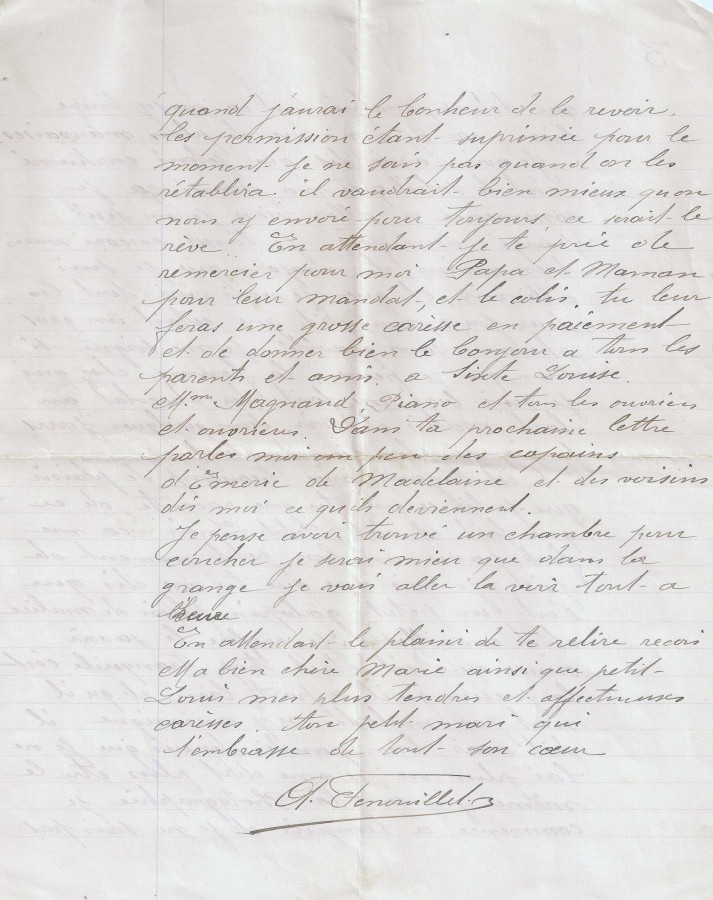 quand j'aurai le bonheur de le revoir.
les permission étant suprimée pour le
moment je ne sais pas quand on les
rétablira il vaudrait bien mieux qu'on
nous y envoie pour toujours, ce serait le
rêve. En attendant je te prie de
remercier pour moi Papa et Maman
pour leur mandat, et le colis. tu leur
feras une grosse carèsse en paiement
et de donner bien le bonjour a tous les
parents et amis a Sixte Louise.
Mme Magnaud Piano et tous les ouvriers
et ouvrières. Dans ta prochaine lettre
parles moi un peu des copains
d'Emeric de Madelaine et des voisins
dis moi ce qu'ils deviennent.
Je pense avoir trouvé un chambre pour
coucher je serai mieu que dans la
grange je vais aller la voir tout a
l'heure
En attendant le plaisir de te relire recois
Ma bien chère Marie ainsi que petit
Louis mes plus tendres et affectueuses
caresses. ton petit mari qui
t'embrasse de tout son cœur
A. Fenouillet